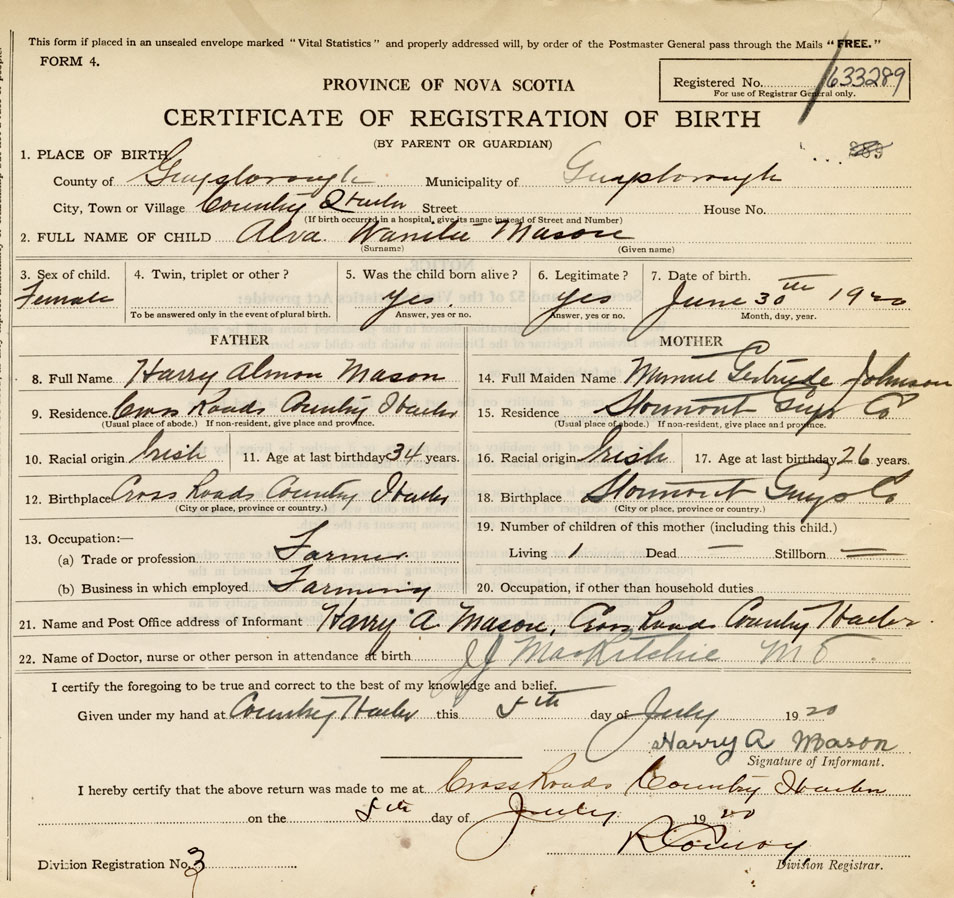 This form if placed in an unsealed envelope marked "Vital Statistics" and properly addressed will, by order of the Postmaster General pass through the Mails "FREE."
FORM 4.
Registered No. 633289
For use of Registrar General only.
PROVINCE OF NOVA SCOTIA
CERTIFICATE OF REGISTRATION OF BIRTH
(BY PARENT OR GUARDIAN)
1. PLACE OF BIRTH
County of Guysborough Municipality of Guysborough
City, Town or Village Country Harbor Street House No.
(If birth occurred in a hospital, give its name instead of Street and Number)
2. FULL NAME OF CHILD Alva Mason
(Surname) (Given name)
3. Sex of child. Female
4. Twin, triplet or other?
To be answered only in the event of plural birth.
5. Was the child born alive? yes.
Answer, yes or no.
6. Legitimate? yes
Answer, yes or no.
7. Date of birth. June 30th 1920
Month, day, year.
FATHER
8. Full Name Harry Almon Mason
9. Residence. Cross Roads Country Harbor
(Usual place of abode.) If non-resident, give place and province.
10. Racial origin Irish 11. Age at last birthday 34 years.
12. Birthplace Cross Roads Country Harbor
(City or place, province or country.)
13. Occupation:—
(a) Trade or profession Farmer
(b) Business in which employed Farming
MOTHER
14. Full Maiden Name Gertrude Johnson
15. Residence Stormont Guys Co
(Usual place of abode.) If non-resident, give place and province.
16. Racial origin Irish 17. Age at last birthday 26 years.
18. Birthplace Stormont Guys Co
(City or place, province or country.)
19. Number of children of this mother (including this child.)
Living 1 Dead — Stillborn —
20. Occupation, if other than household duties
21. Name and Post Office address of Informant Harry A Mason, Cross Roads Country Harbor
22. Name of Doctor, nurse or other person in attendance at birth J J MacKitchie M D
I certify the foregoing to be true and correct to the best of my knowledge and belief.
Given under my hand at Country Harbor this 5th day of July 1920
Harry A Mason
Signature of Informant.
I hereby certify that the above return was made to me at Cross Roads Country Harbor
on the day of July 1920
Division Registration No. 3
Division Registrar.